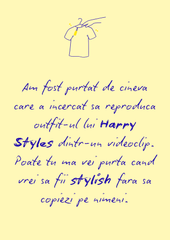 Am fost purtat de cineva
care a incercat sa reproduca
outfit-ul lui Harry
Styles dintr-un videoclip.
Poate tu ma vei purta cand
vrei sa fii stylish fara sa
copiezi pe nimeni.